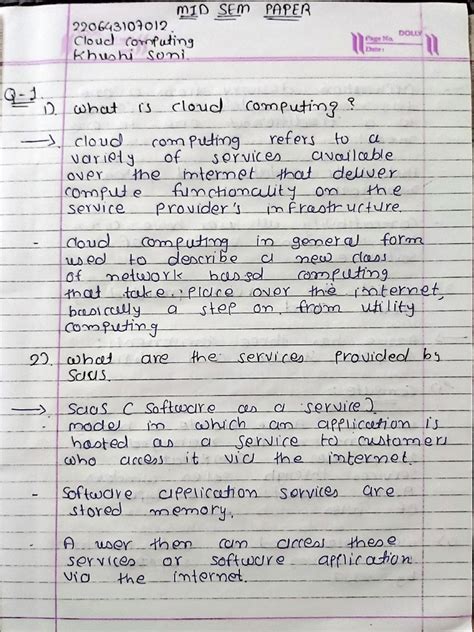 MID SEM PAPER
220643107012.
Cloud computing
Khushi Soni.
DOLLY
Page No.
Date:
Q-1.
1). what is cloud computing?
→ cloud computing refers to a
variety of services available
over the internet that deliver
compute functionality on the
service provider's infrastructure.
- cloud computing in general form
used to describe a new class
of network based computing
that take place over the internet,
basically a step on from utility
computing
2). what are the services provided by
saas.
→ saas ( software as a service).
model in which an application is
hosted as a service to customers
who access it via the internet.
- software application services are
stored memory.
- A user then can access these
services or software application
via the internet.